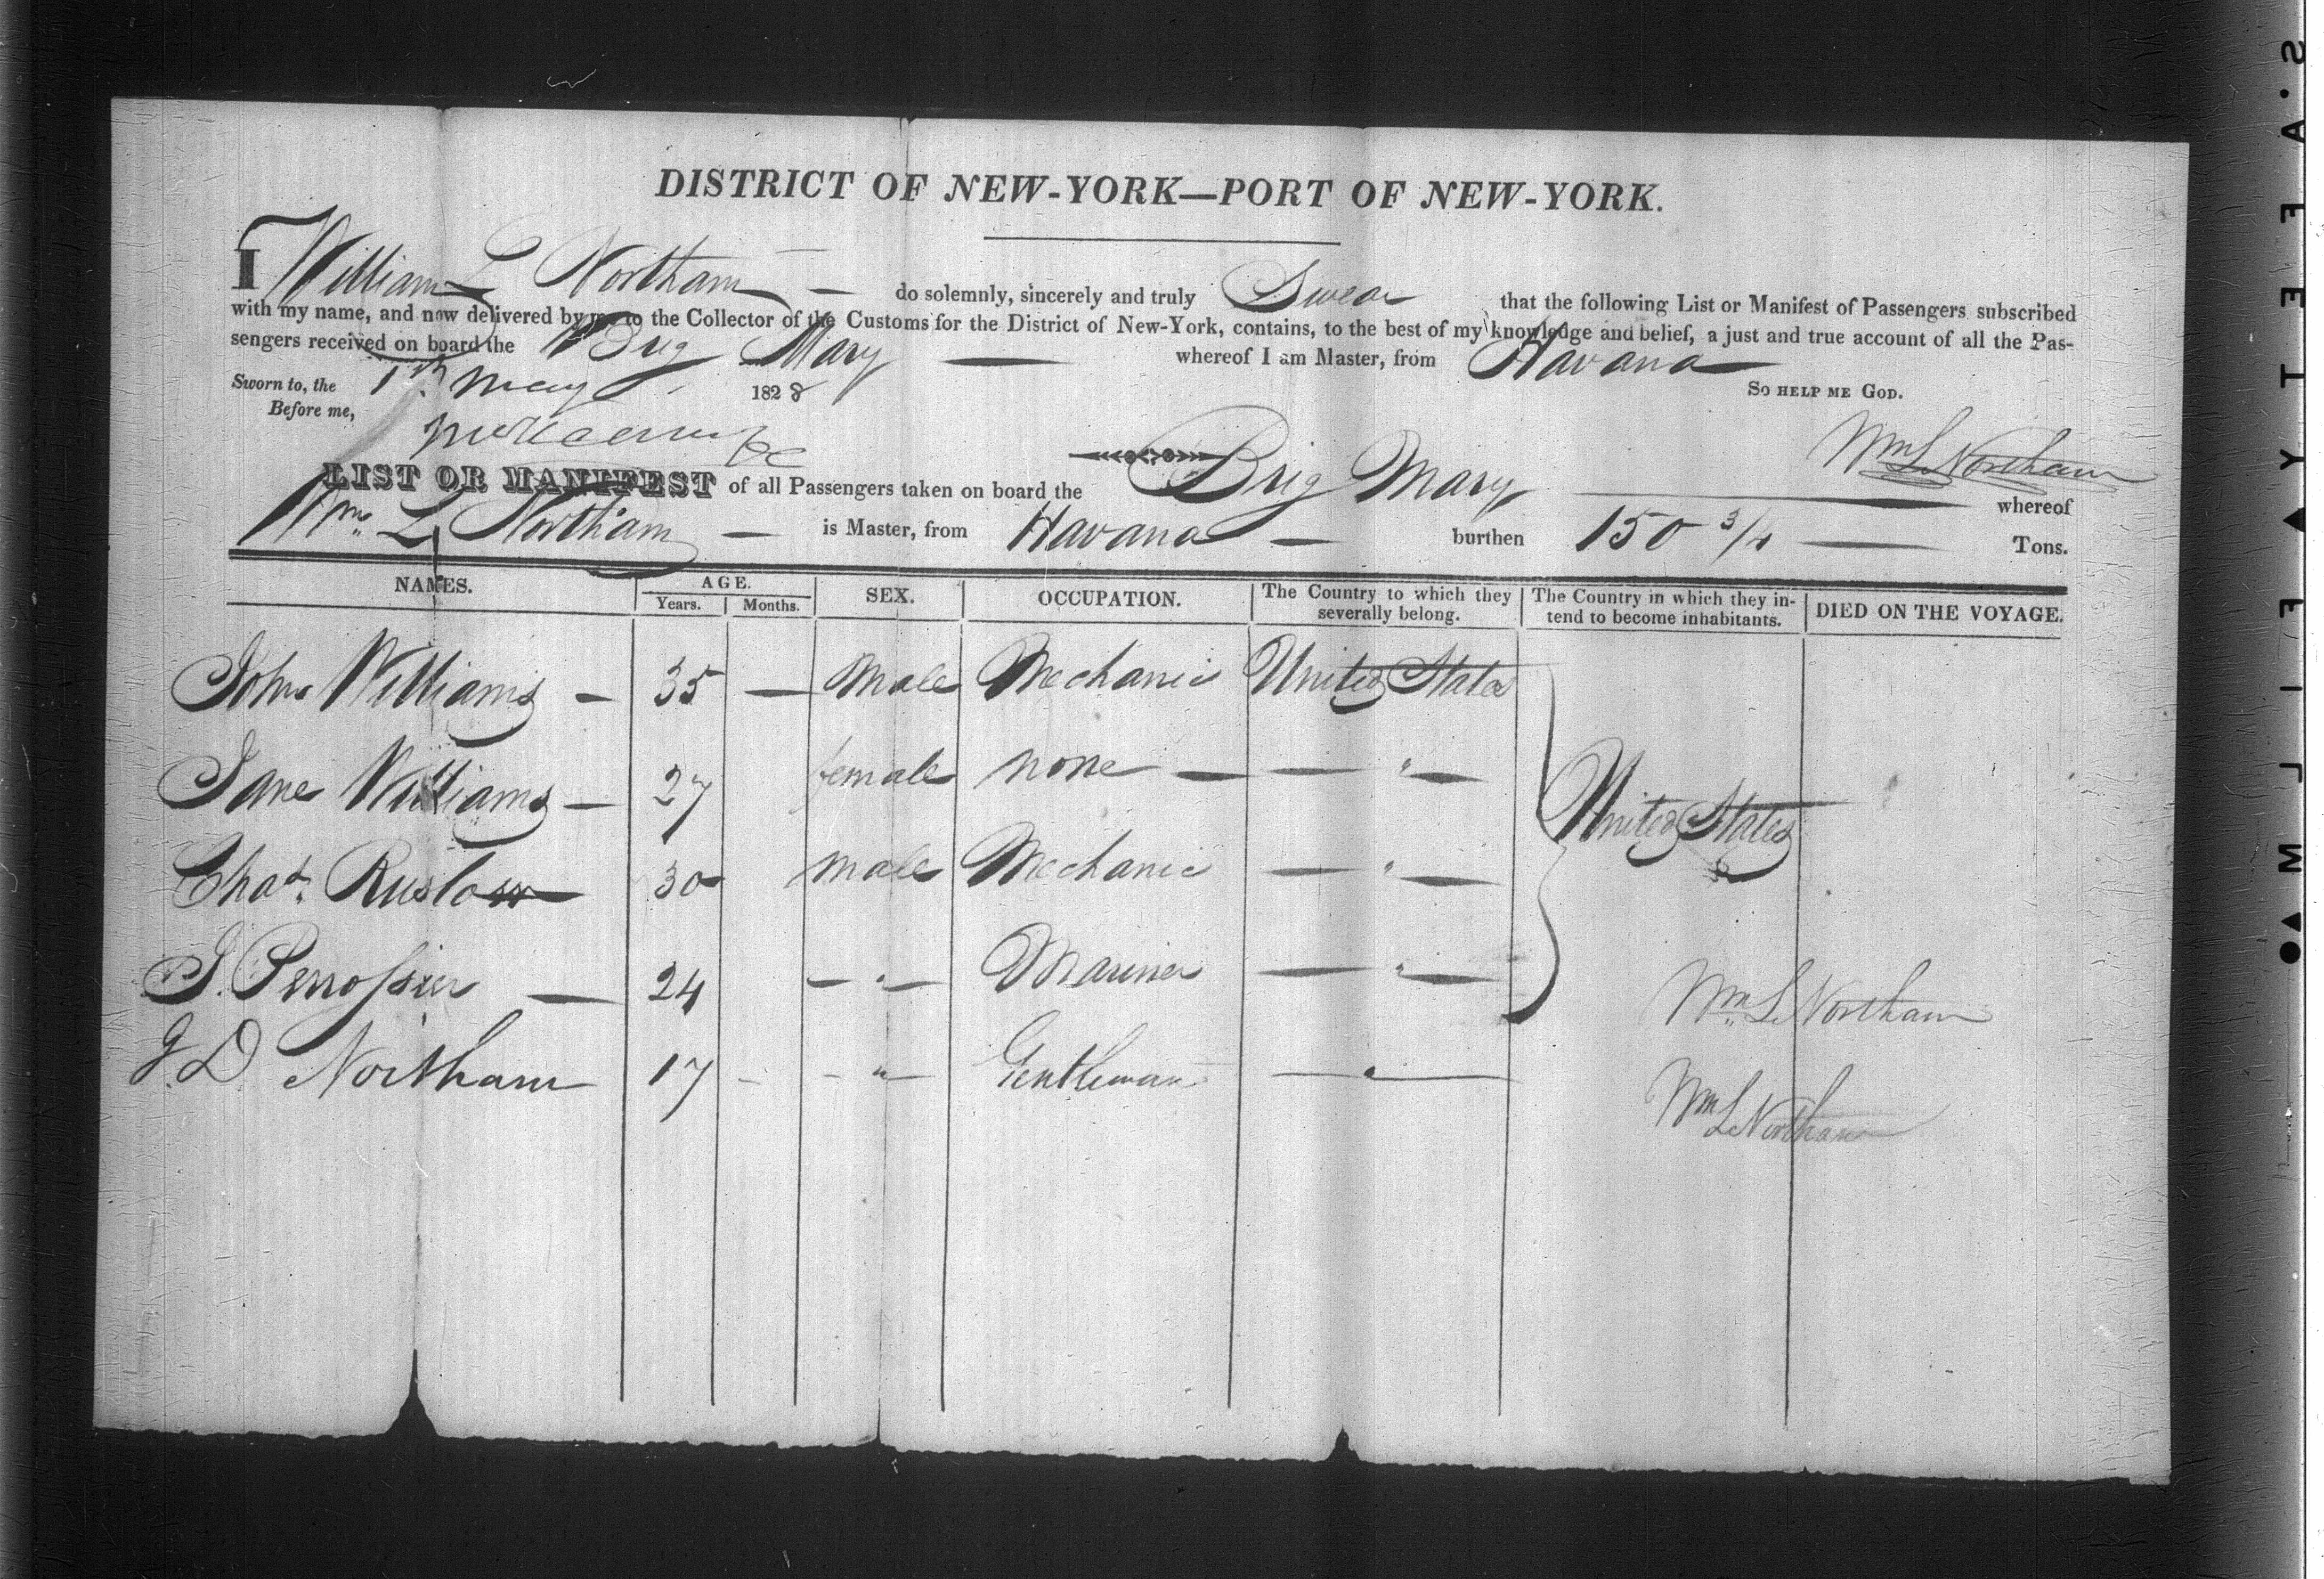 DISTRICT OF NEW-YORK—PORT OF NEW-YORK.
I William L Northam — do solemnly, sincerely and truly Swear that the following List or Manifest of Passengers subscribed
with my name, and now delivered by me to the Collector of the Customs for the District of New-York, contains, to the best of my knowledge and belief, a just and true account of all the Pas-
sengers received on board the Brig Mary — whereof I am Master, from Havana
Sworn to, the 1th May 1828 So help me God.
Before me,
Wm L Northam
LIST OR MANIFEST of all Passengers taken on board the Brig Mary — whereof
Wm L Northam — is Master, from Havana — burthen 150 3/4 — Tons.
NAMES. AGE. Years. Months. SEX. OCCUPATION. The Country to which they severally belong. The Country in which they in-tend to become inhabitants. DIED ON THE VOYAGE.
John Williams — 35 — Male Mechanic United States
Jane Williams — 27 female none — — " —
United States
Chas. Ruslow 30 male Mechanic — " —
J. Perrossier — 24 — " — Mariner — " —
Wm L Northam
J. D Northam 17 - - " — Gentleman — " —
Wm L Northam
SAFETY FILM